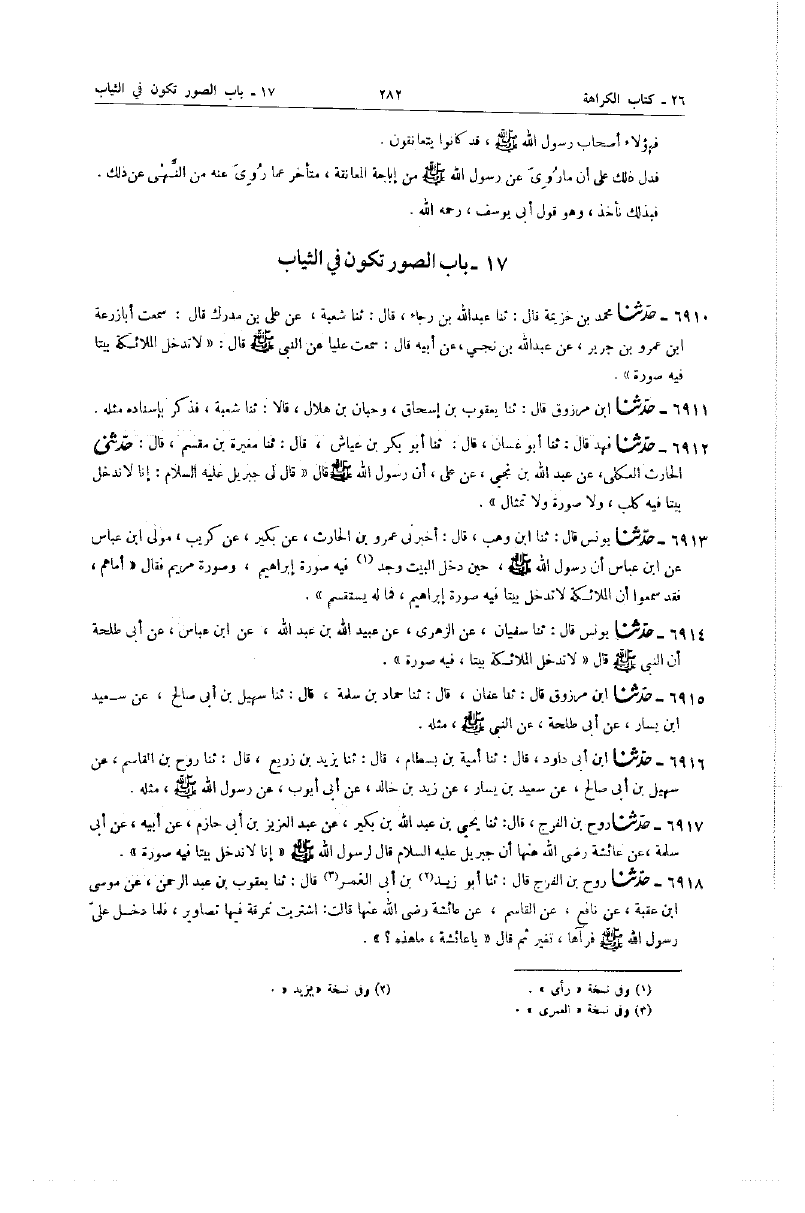 ٢٦ ـ كتاب الكراهة ٢٨٢ ١٧ ـ باب الصور تكون في الثياب
فهؤلاء أصحاب رسول الله ﷺ ، قد كانوا يتعانقون .
فدل ذلك على أن ما رُوِىَ عن رسول الله ﷺ من إباحة المعانقة ، متأخر عما رُوِىَ عنه من النَّهْى عن ذلك .
فبذلك نأخذ ، وهو قول أبى يوسف ، رحمه الله .
١٧ ـ باب الصور تكون في الثياب
٦٩١٠ ـ حدّثنا محمد بن خزيمة قال : ثنا عبدالله بن رجاء ، قال : ثنا شعبة ، عن على بن مدرك قال : سمعت أبازرعة
ابن عمرو بن جرير ، عن عبدالله بن نجى ، عن أبيه قال : سمعت عليا عن النبى ﷺ قال : « لا تدخل الملائكة بيتا
فيه صورة » .
٦٩١١ ـ حدّثنا ابن مرزوق قال : ثنا يعقوب بن إسحاق ، وحبان بن هلال ، قالا : ثنا شعبة ، فذكر بإسناده مثله .
٦٩١٢ ـ حدّثنا فهد قال : ثنا أبو غسان ، قال : ثنا أبو بكر بن عياش ، قال : ثنا مغيرة بن مقسم ، قال : حدّثنى
الحارث العكلى، عن عبد الله بن نجى ، عن على ، أن رسول الله ﷺ قال « قال لى جبريل عليه السلام : إنا لاندخل
بيتا فيه كلب ، ولا صورة ولا تمثال » .
٦٩١٣ ـ حدّثنا يونس قال : ثنا ابن وهب ، قال : أخبرنى عمرو بن الحارث ، عن بكير ، عن كريب ، مولى ابن عباس
عن ابن عباس أن رسول الله ﷺ ، حين دخل البيت وجد (١) فيه صورة إبراهيم ، وصورة مريم فقال « أماهم ،
فقد سمعوا أن الملائكة لاتدخل بيتا فيه صورة إبراهيم ، فما له يستقسم » .
٦٩١٤ ـ حدّثنا يونس قال : ثنا سفيان ، عن الزهرى ، عن عبيد الله بن عبد الله ، عن ابن عباس ، عن أبى طلحة
أن النبى ﷺ قال « لاتدخل الملائكة بيتا ، فيه صورة » .
٦٩١٥ ـ حدّثنا ابن مرزوق قال : ثنا عفان ، قال : ثنا حماد بن سلمة ، قال : ثنا سهيل بن أبى صالح ، عن سعيد
ابن يسار ، عن أبى طلحة ، عن النبى ﷺ ، مثله .
٦٩١٦ ـ حدّثنا ابن أبى داود ، قال : ثنا أمية بن بسطام ، قال : ثنا يزيد بن زريع ، قال : ثنا روح بن القاسم ، عن
سهيل بن أبى صالح ، عن سعيد بن يسار ، عن زيد بن خالد ، عن أبى أيوب ، عن رسول الله ﷺ ، مثله .
٦٩١٧ ـ حدّثنا روح بن الفرج ، قال: ثنا يحيى بن عبد الله بن بكير ، عن عبد العزيز بن أبى حازم ، عن أبيه ، عن أبى
سلمة ، عن عائشة رضى الله عنها أن جبريل عليه السلام قال لرسول الله ﷺ « إنا لاندخل بيتا فيه صورة » .
٦٩١٨ ـ حدّثنا روح بن الفرج قال : ثنا أبو زيد(٢) بن أبى الغمر(٣) قال : ثنا يعقوب بن عبد الرحمن ، عن موسى
ابن عقبة ، عن نافع ، عن القاسم ، عن عائشة رضى الله عنها قالت: اشتريت نمرقة فيها تصاوير ، فلما دخل علىّ
رسول الله ﷺ فرآها ، تغير ثم قال « ياعائشة ، ماهذه ؟ » .
(١) وفى نسخة « رأى » . (٢) وفى نسخة « يزيد » .
(٣) وفى نسخة « العمرى » .